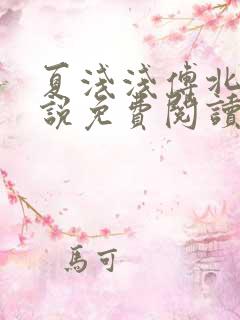 夏淺淺傅北
說免費閱讀
馬可